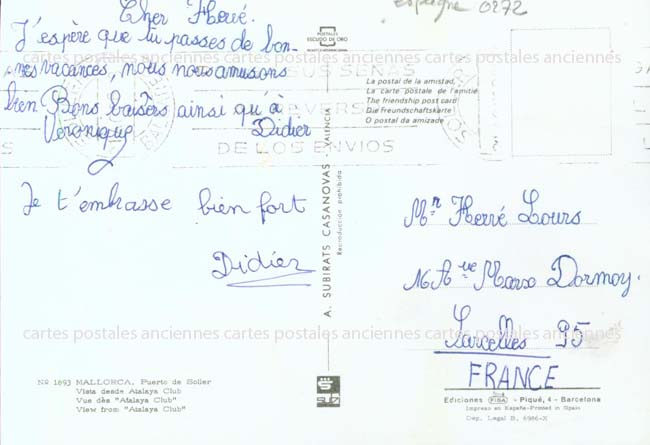 espagne 0272
Cher Hervé.
J'espère que tu passes de bon-
nes vacances, nous nous amusons
bien Bons baisers ainsi qu'à
Véronique Didier
Je t'embrasse bien fort
Didier
POSTALES
ESCUDO DE ORO
La postal de la amistad
La carte postale de l'amitié
The friendship post card
Die Freundschaftskarte
O postal da amizade
DE LOS ENVIOS
A. SUBIRATS CASANOVAS - VALENCIA
Reproducción prohibida
Mr Hervé Lours
Ave Marx Dormoy.
Sarcelles 95
FRANCE
cartes postales anciennes cartes postales anciennes cartes postales anciennes
cartes postales anciennes cartes postales anciennes cartes postales anciennes
Nº 1893 MALLORCA. Puerto de Soller
Vista desde Atalaya Club
Vue dès "Atalaya Club"
View from "Atalaya Club"
Ediciones FISA - Piqué, 4 - Barcelona
Impreso en España-Printed in Spain
Dep. Legal B. 6986-X